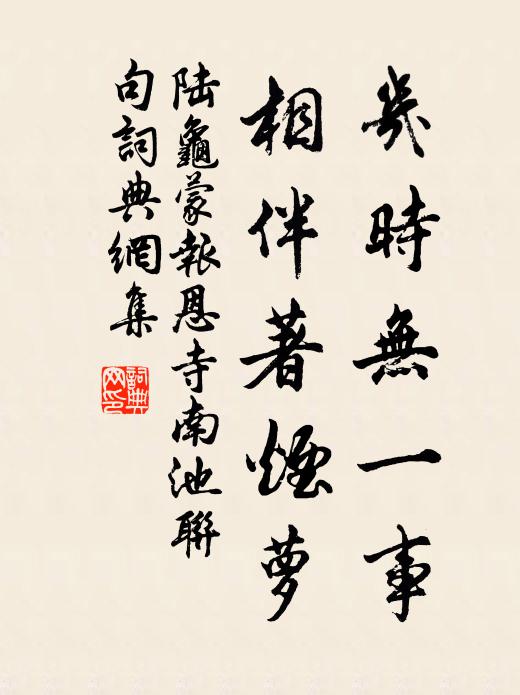 幾時無一事
相伴著煙蘿
陸龜蒙報恩寺南池聯
句詞典網集
詞典
网印